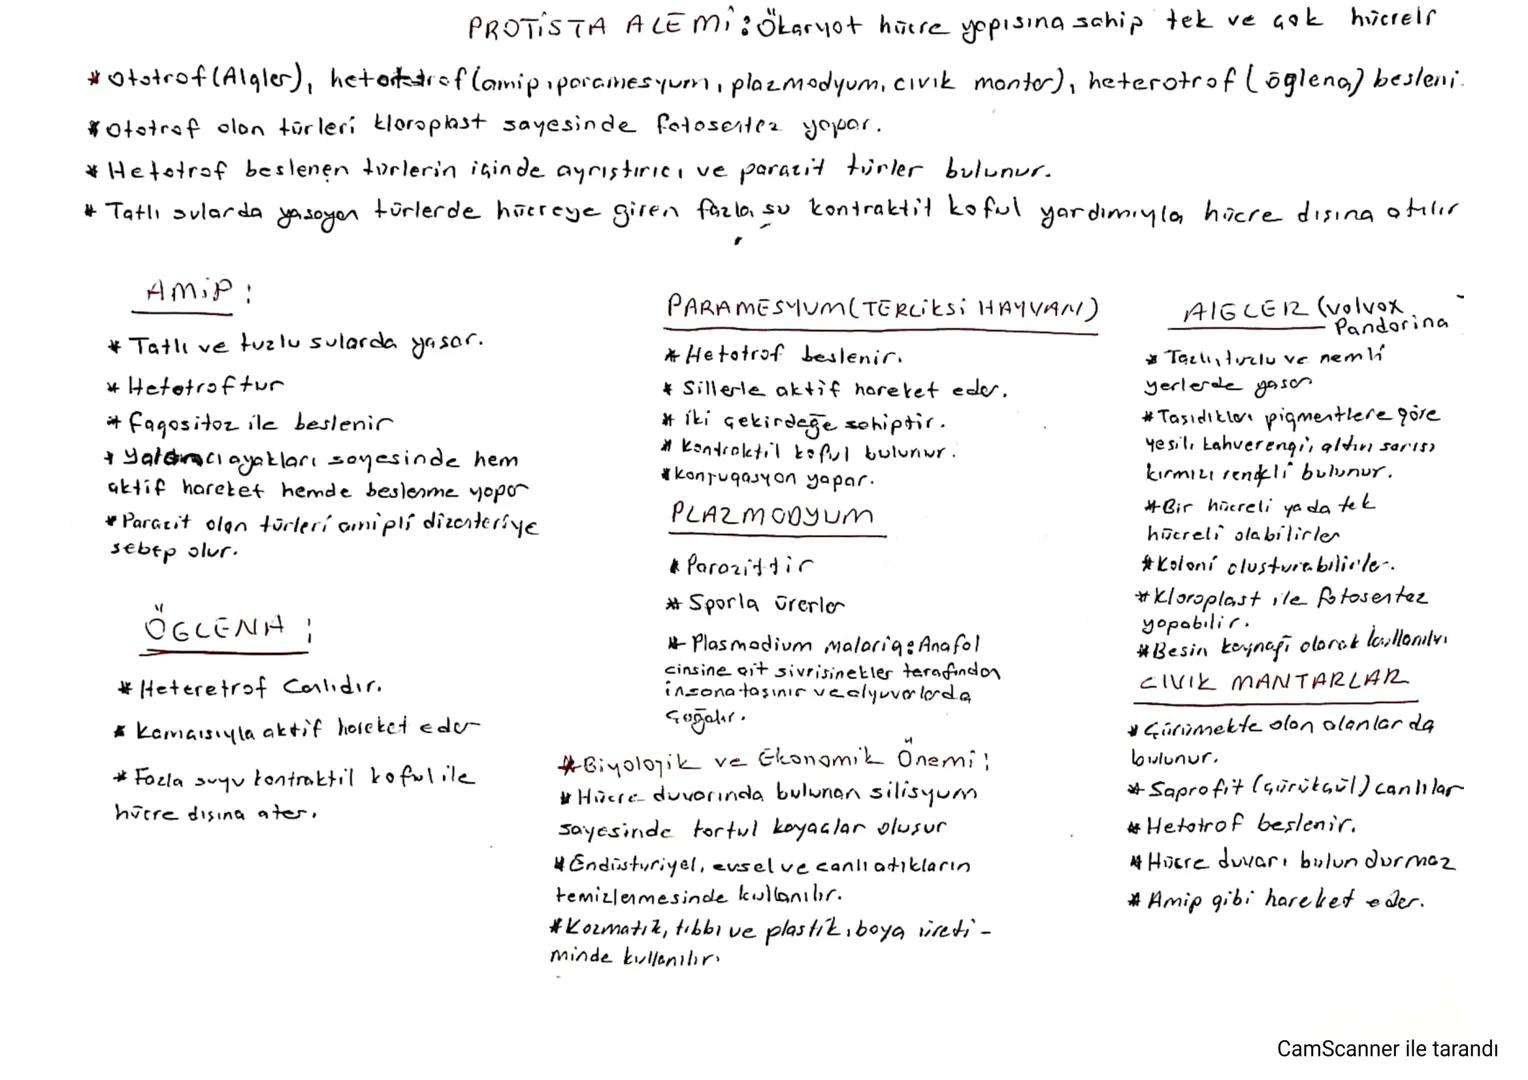 PROTİSTA ALEMİ: Ökaryot hücre yapısına sahip tek ve çok hücrelr
* Ototrof (Algler), hetotrof (amip, paramesyum, plazmodyum, cıvık mantar), heterotrof (öglena) besleni.
* Ototrof olan türleri kloroplast sayesinde fotosentez yapar.
* Hetotrof beslenen türlerin içinde ayrıştırıcı ve parazit türler bulunur.
* Tatlı sularda yaşayan türlerde hücreye giren fazla su kontraktit koful yardımıyla hücre dışına atılır
AMİP:
* Tatlı ve tuzlu sularda yaşar.
* Hetotroftur
* fagositoz ile beslenir
* Yalancı ayakları sayesinde hem
aktif hareket hemde beslenme yapar
* Parazit olan türleri amipli dizanteriye
sebep olur.
ÖGLENA:
* Heteretrof canlıdır.
* Kamçısıyla aktif hareket eder
* Fazla suyu kontraktil koful ile
hücre dışına atar.
PARAMESYUM (TERLİKSİ HAYVAN)
* Hetotrof beslenir.
* Sillerle aktif hareket eder.
* İki çekirdeğe sahiptir.
* Kontraktil koful bulunur.
* Konjugasyon yapar.
PLAZMODYUM
* Parazittir
* Sporla ürerler
* Plasmodium malaria: Anafol
cinsine ait sivrisinekler tarafından
insana taşınır ve alyuvarlarda
çoğalır.
* Biyolojik ve Ekonomik Önemi:
* Hücre duvarında bulunan silisyum
sayesinde tortul kayaçlar oluşur
* Endüsturiyel, evsel ve canlı atıkların
temizlenmesinde kullanılır.
* Kozmatik, tıbbi ve plastik, boya üreti-
minde kullanılır.
AlGLER (volvox
Pandorina
* Tatlı, tuzlu ve nemli
yerlerde yaşar
* Taşıdıkları pigmentlere göre
yeşil, kahverengi, altın sarısı
kırmızı renkli bulunur.
* Bir hücreli ya da tek
hücreli olabilirler
* Koloni oluşturabilirler.
* Kloroplast ile fotosentez
yapabilir.
* Besin kaynağı olarak kullanılır
CIVIK MANTARLAR
* Çürümekte olan alanlarda
bulunur.
* Saprofit (çürükçül) canlılar
* Hetotrof beslenir.
* Hücre duvarı bulundurmaz
* Amip gibi hareket eder.
CamScanner ile tarandı